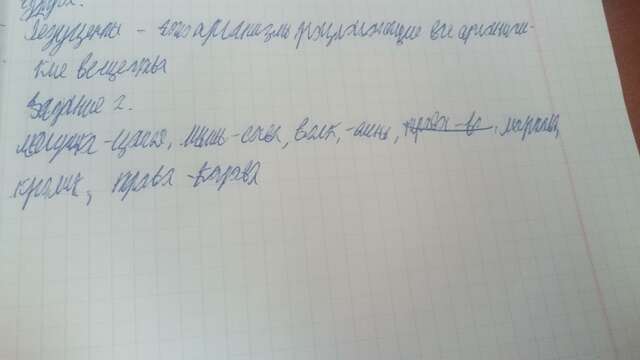 Редуценты - это организмы разлагающие все органиче-
кие вещества
Задание 2.
лягушка - цапля, мышь - сова, волк, - лины, морковь,
кролик, трава - корова